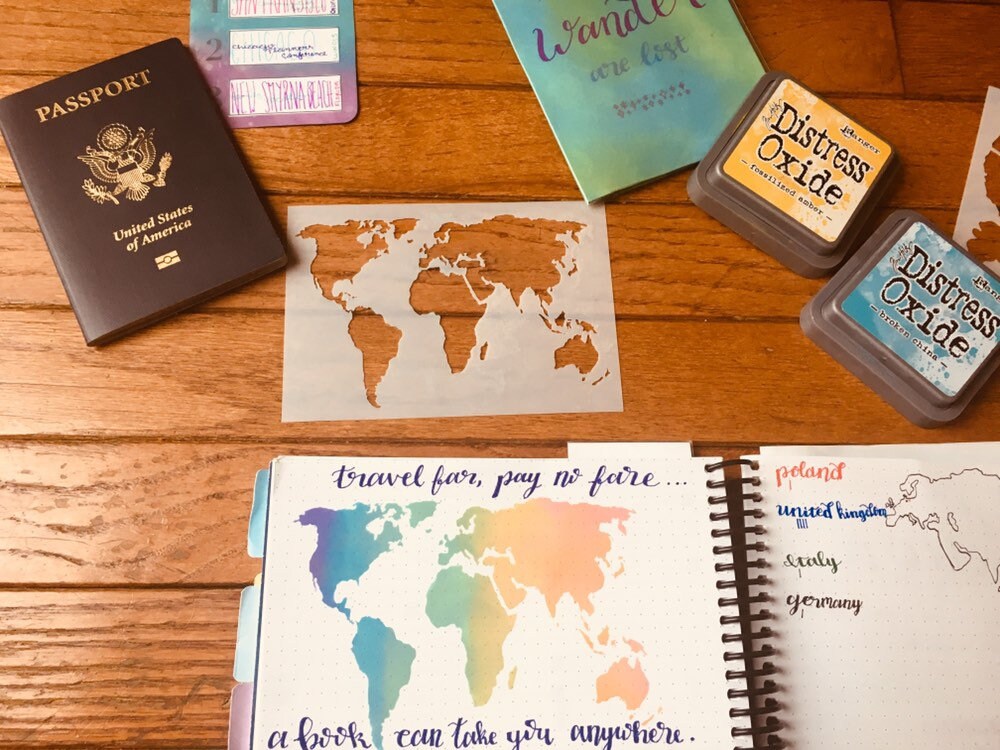 1
SAN FRANSISCO
2
CHICAGO
chicago planner
conference
NEW SMYRNA BEACH
wander
are lost
PASSPORT
United States
of America
Ranger
Distress
Oxide
— fossilized amber —
Ranger
Distress
Oxide
— broken china —
travel far, pay no fare...
a book can take you anywhere.
poland
united kingdom
italy
germany